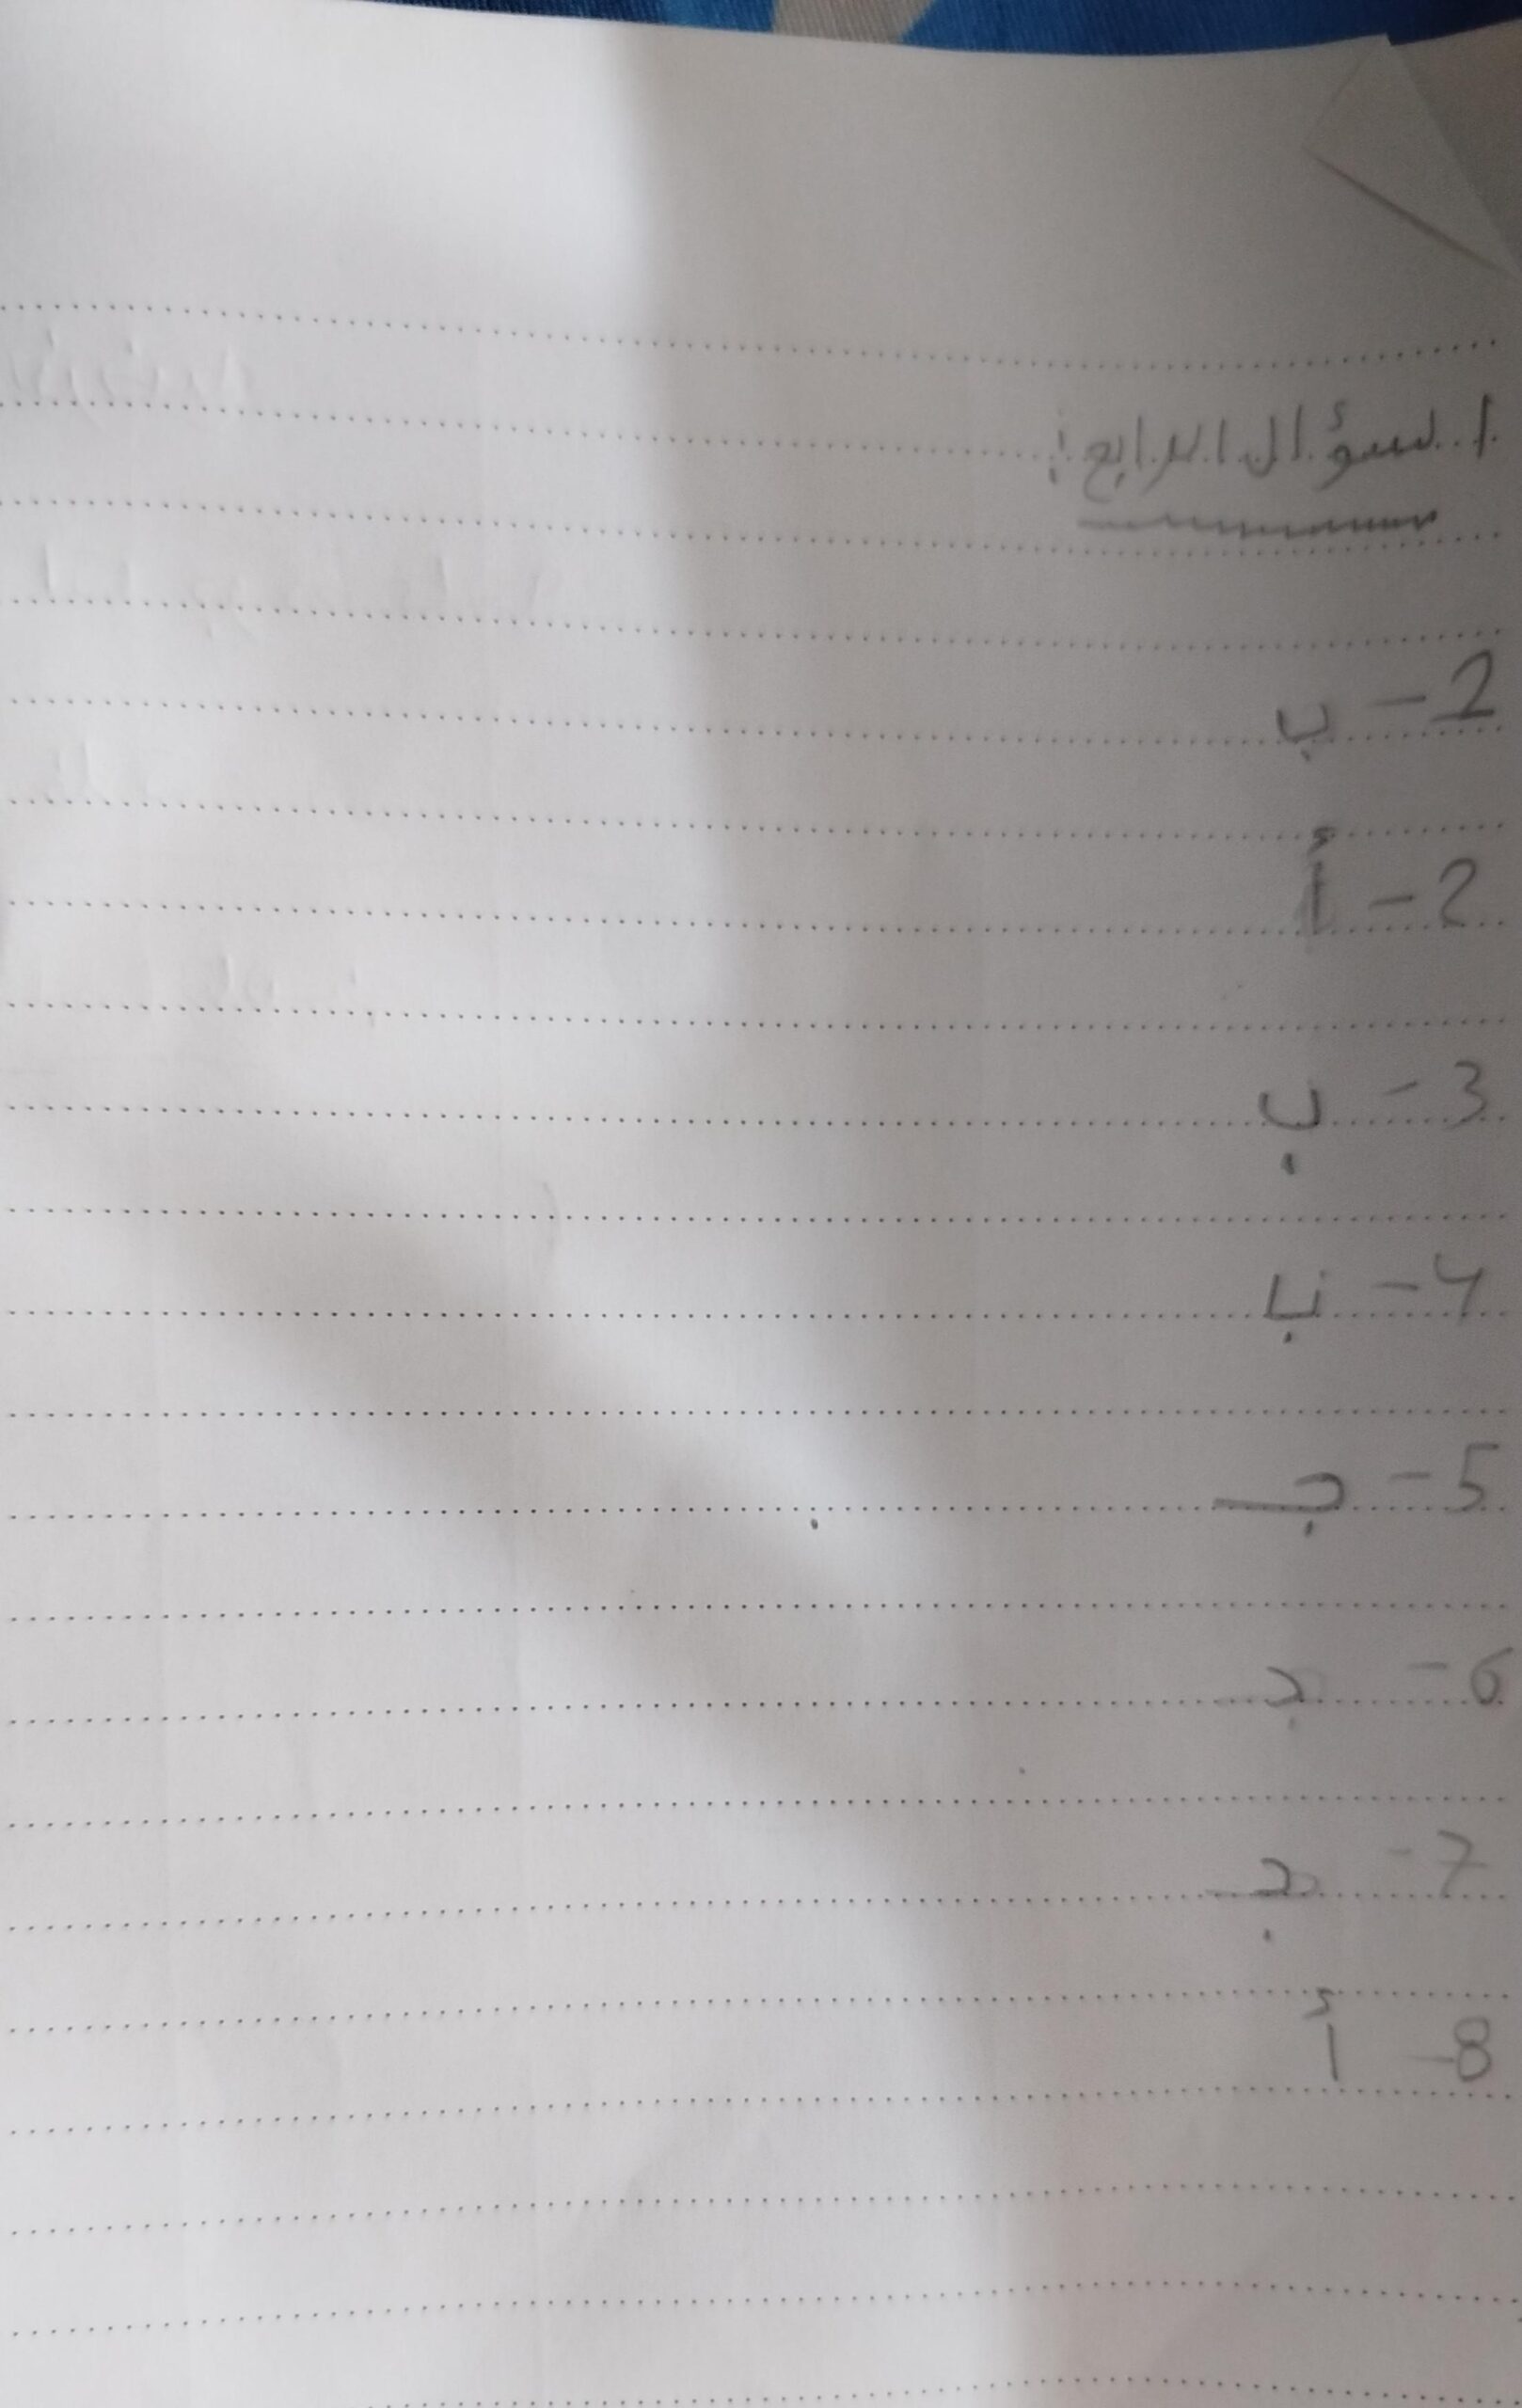 السؤال الرابع:
2- ب
2- أ
3- ب
4- ب
5- جـ
6- جـ
7- جـ
8- أ